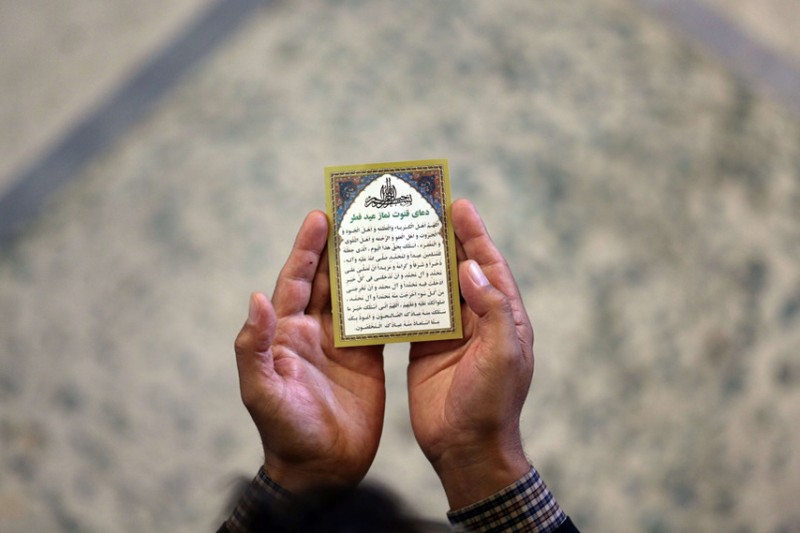 دعای قنوت نماز عید فطر
اللهم اهل الکبریاء والعظمه و اهل الجود و
الجبروت و اهل العفو و الرحمه و اهل التقوی
و المغفره، اسئلک بحق هذا الیوم، الذی جعلته
للمسلمین عیدا و لمحمد صلی الله علیه و آله
ذخرا و شرفا و کرامة و مزیدا ان تصلی علی
محمد و آل محمد و ان تدخلنی فی کل خیر
ادخلت فیه محمدا و آل محمد و ان تخرجنی
من کل سوء اخرجت منه محمدا و آل محمد،
صلواتک علیه وعلیهم، اللهم انی اسئلک خیر ما
سئلک منه عبادک الصالحون و اعوذ بک
مما استعاذ منه عبادک المخلصون.